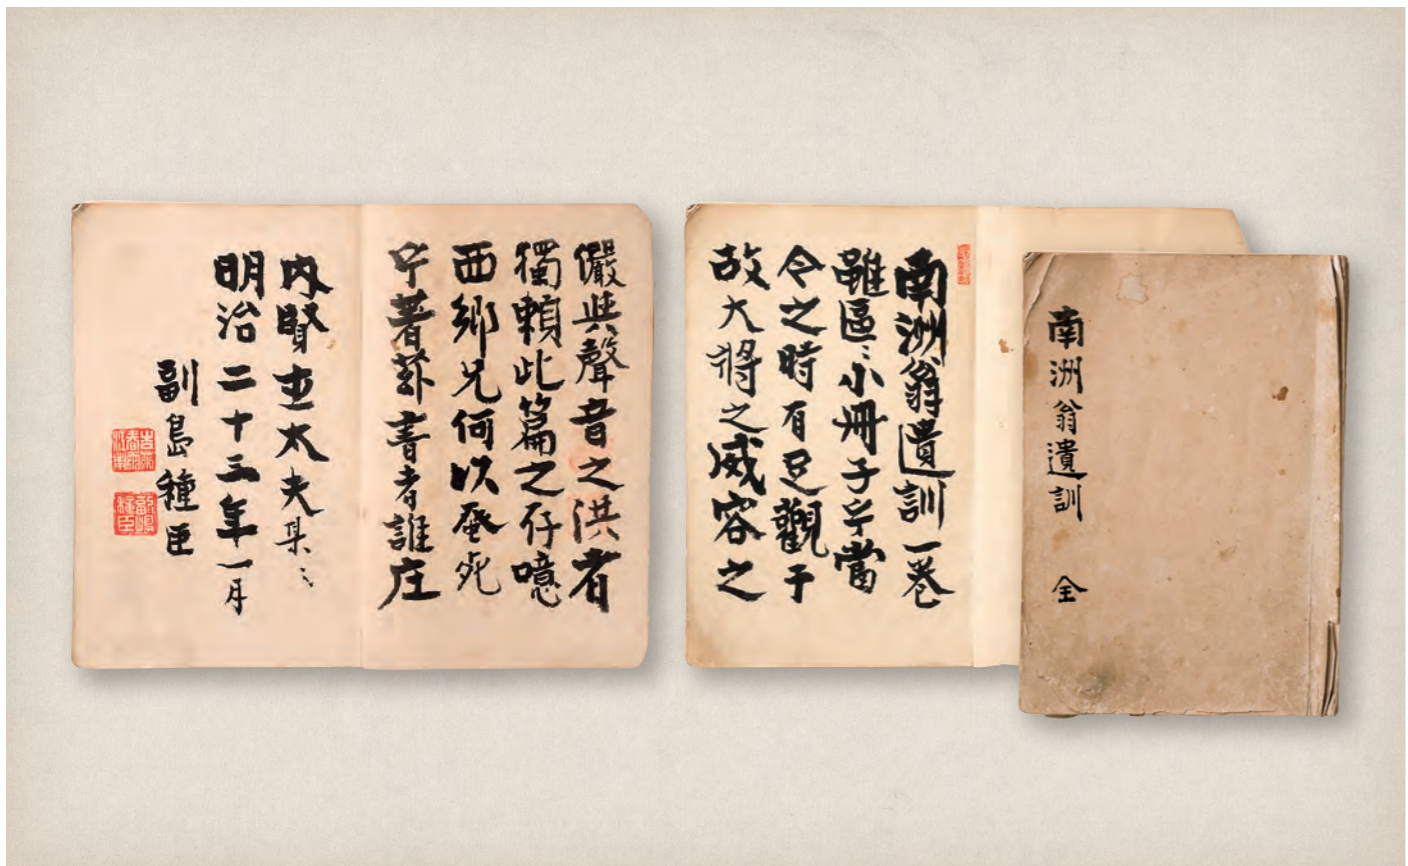 南洲翁遺訓 全
南洲翁遺訓一巻
雖區〻小冊子乎當
今之時有足觀乎
故大将之威容之
儼與聲音之洪者
獨頼此篇之存噫
西郷兄何以蚤死
乎著茲書者誰庄
内賢士太夫某〻
明治二十三年一月
副島種臣
副島種臣